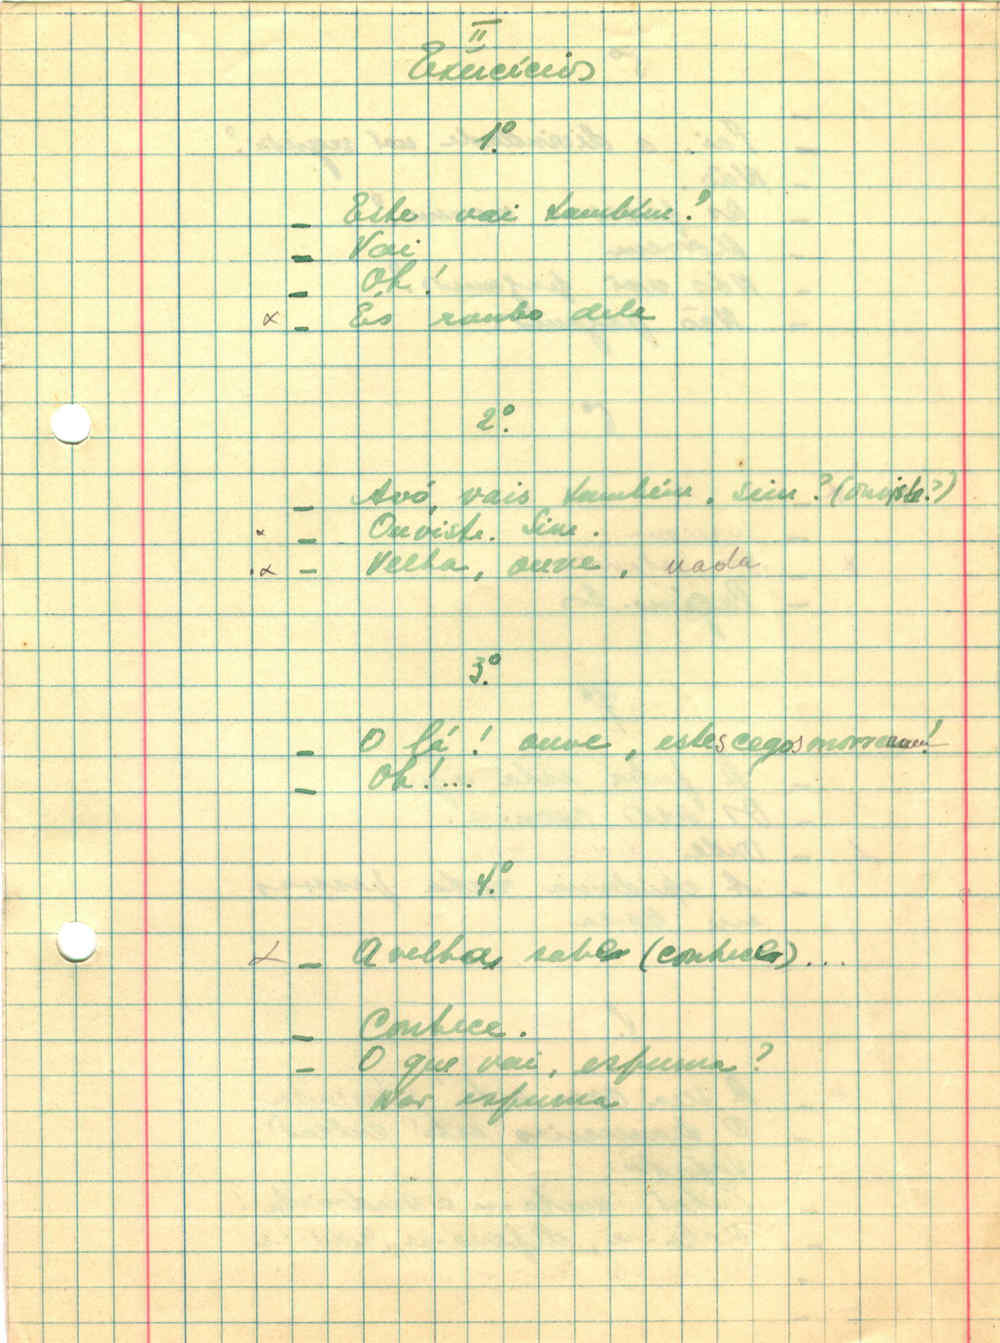 II
Exercícios
1º
– Este vai também?
– Vai
– Oh!
x – És roubo dele
2º
– Avó, vais também, sim? (ouviste?)
x – Ouviste. Sim.
x – Velha, ouve, nada
3º
– O lá! ouve, estes cegos morreram!
– Oh!...
4º
x – A velha, sabes (conheces)...
– Conhece.
– O que vai, espuma?
espuma